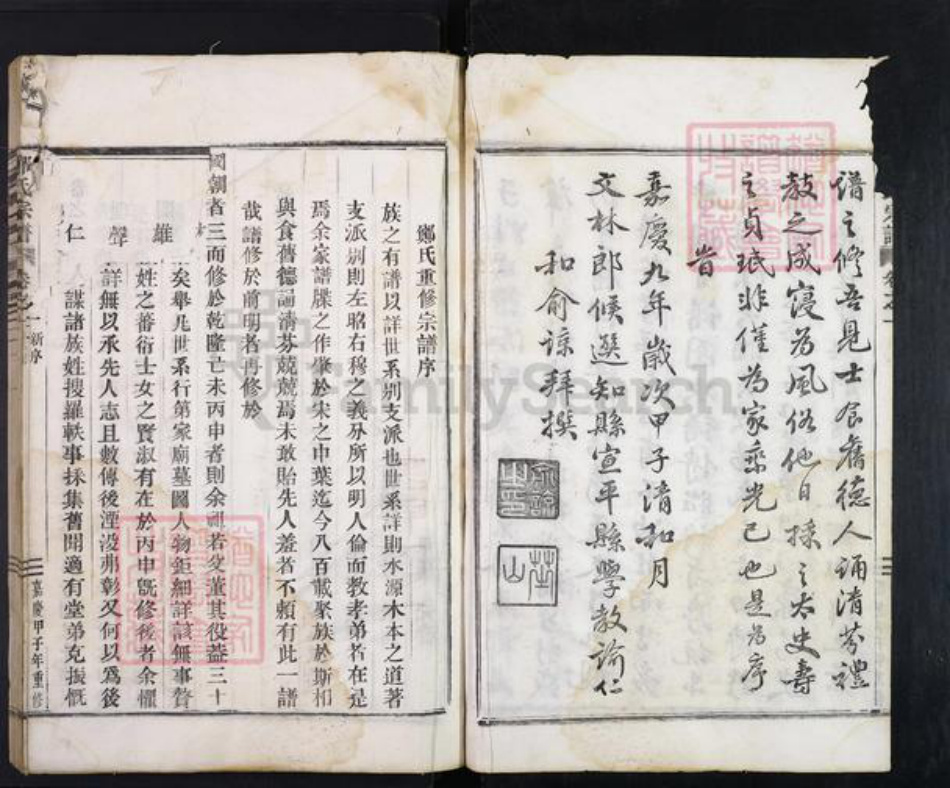 譜之修吾見士食舊德人誦清芬禮
教之成寖為風俗他日採之太史壽
之貞珉非僅為家乘光已也是為序
旹
嘉慶九年歲次甲子清和月
文林郎候選知縣宣平縣學教諭仁
和俞諒拜撰
鄭氏重修宗譜序
族之有譜以詳世系別支派也世系詳則水源木本之道著
支派別則左昭右穆之義分所以明人倫而教孝弟者在是
焉余家譜牒之作肇於宋之中葉迄今八百載聚族於斯相
與食舊德誦清芬兢兢焉未敢貽先人羞者不賴有此一譜
哉譜修於前明者再修於
國朝者三而修於乾隆己未丙申者則余祖若父董其役葢三十
雄 矣舉凡世系行第家廟墓圖人物鉅細詳該無事贅
姓之蕃衍士女之賢淑有在於丙申旣修後者余懼
聲 詳無以承先人志且數傳後湮沒弗彰又何以爲後
仁 謀諸族姓搜羅軼事採集舊聞適有堂弟克振慨
氏宗譜 卷之一 新序
嘉慶甲子年重修
FamilySearch